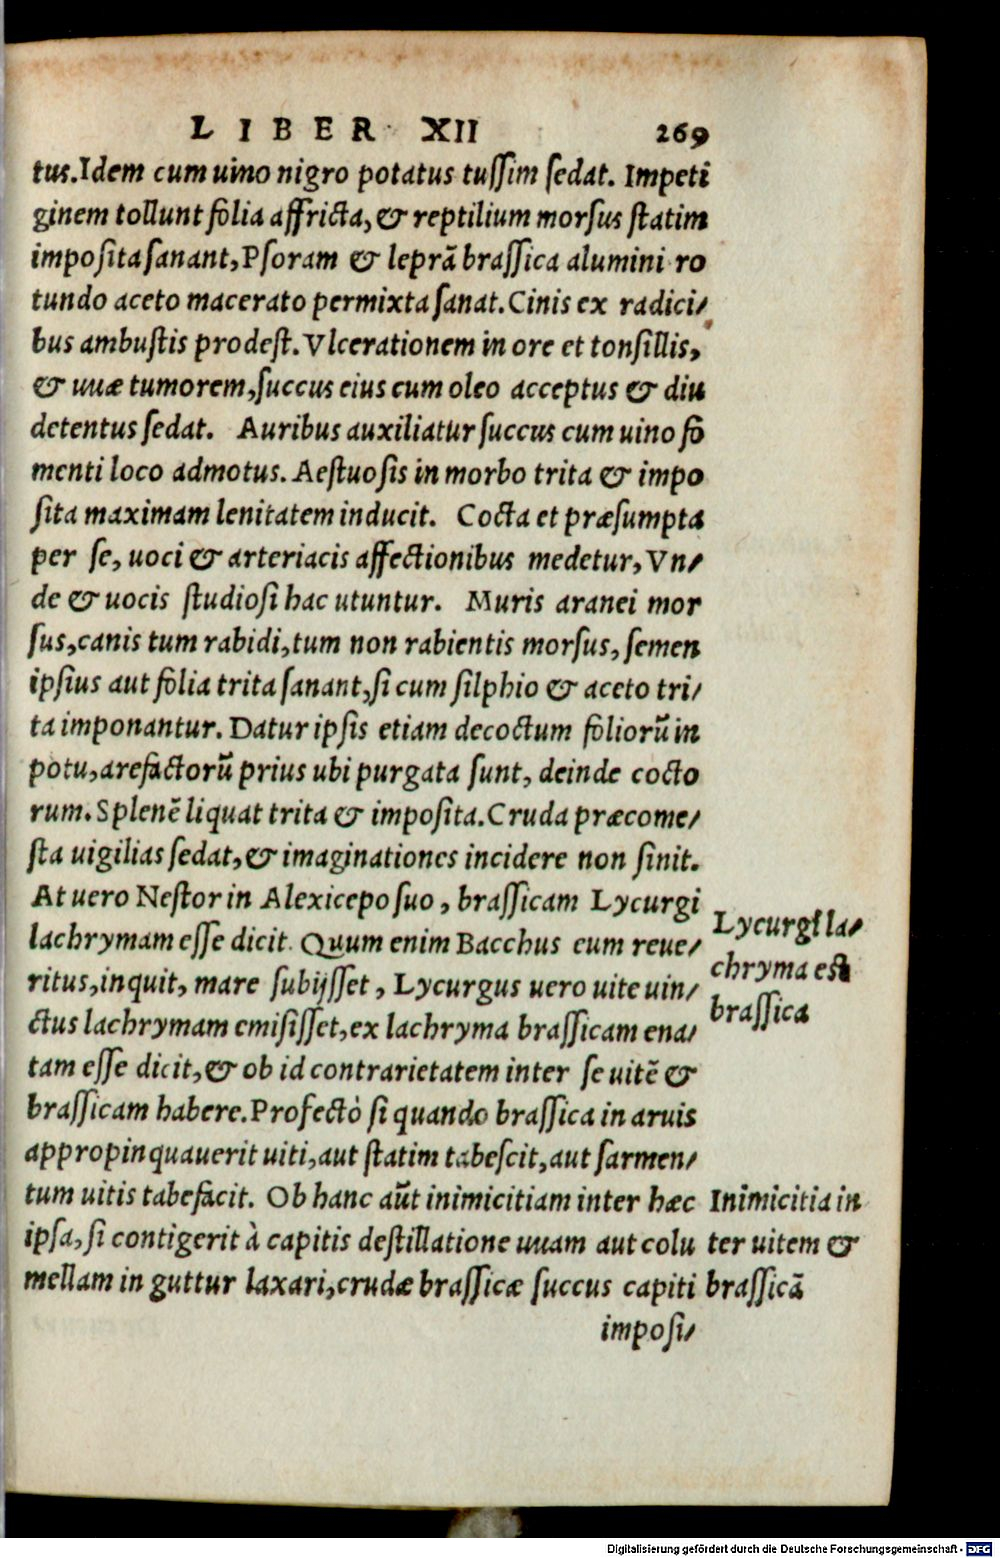 LIBER XII 269
tus. Idem cum uino nigro potatus tussim sedat. Impeti
ginem tollunt folia affricta, & reptilium morsus statim
imposita sanant, Psoram & leprã brassica alumini ro
tundo aceto macerato permixta sanat. Cinis ex radici/
bus ambustis prodest. Vlcerationem in ore et tonsillis,
& uuæ tumorem, succus eius cum oleo acceptus & diu
detentus sedat. Auribus auxiliatur succus cum uino fo
menti loco admotus. Aestuosis in morbo trita & impo
sita maximam lenitatem inducit. Cocta et præsumpta
per se, uoci & arteriacis affectionibus medetur, Vn/
de & uocis studiosi hac utuntur. Muris aranei mor
sus, canis tum rabidi, tum non rabientis morsus, semen
ipsius aut folia trita sanant, si cum silphio & aceto tri/
ta imponantur. Datur ipsis etiam decoctum foliorũ in
potu, arefactorũ prius ubi purgata sunt, deinde cocto
rum. Splenẽ liquat trita & imposita. Cruda præcome/
sta uigilias sedat, & imaginationes incidere non sinit.
At uero Nestor in Alexicepo suo, brassicam Lycurgi
lachrymam esse dicit. Quum enim Bacchus eum reue/
ritus, inquit, mare subijsset, Lycurgus uero uite uin/
ctus lachrymam emisisset, ex lachryma brassicam ena/
tam esse dicit, & ob id contrarietatem inter se uitẽ &
brassicam habere. Profectò si quando brassica in aruis
appropinquauerit uiti, aut statim tabescit, aut sarmen/
tum uitis tabefacit. Ob hanc aũt inimicitiam inter hæc
ipsa, si contigerit à capitis destillatione uuam aut colu
mellam in guttur laxari, crudæ brassicæ succus capiti
imposi/
Lycurgi la/
chryma est
brassica
Inimicitia in
ter uitem &
brassicã
Digitalisierung gefördert durch die Deutsche Forschungsgemeinschaft - DFG